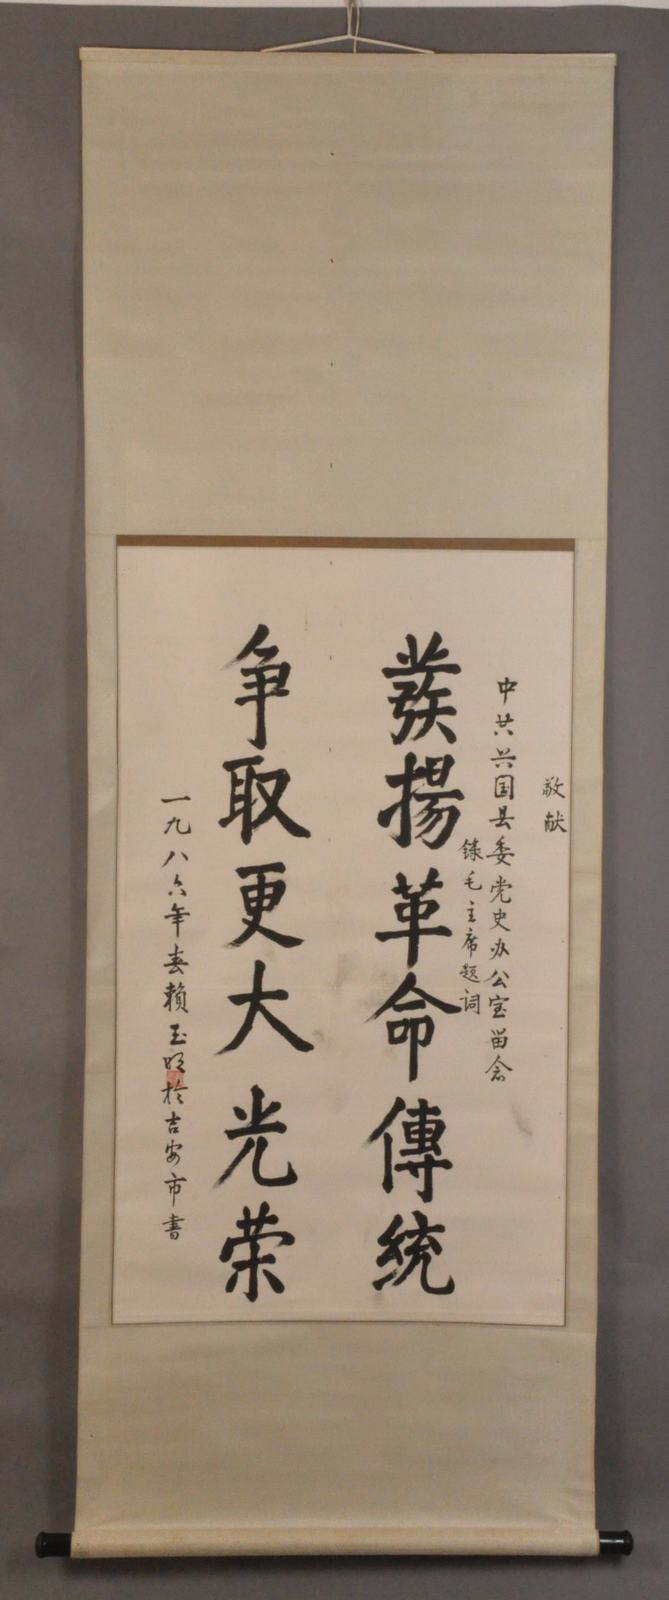 敬献
中共兴国县委党史办公室留念
錄毛主席题词
發揚革命傳統
争取更大光荣
一九八六年春赖玉明於吉安市書